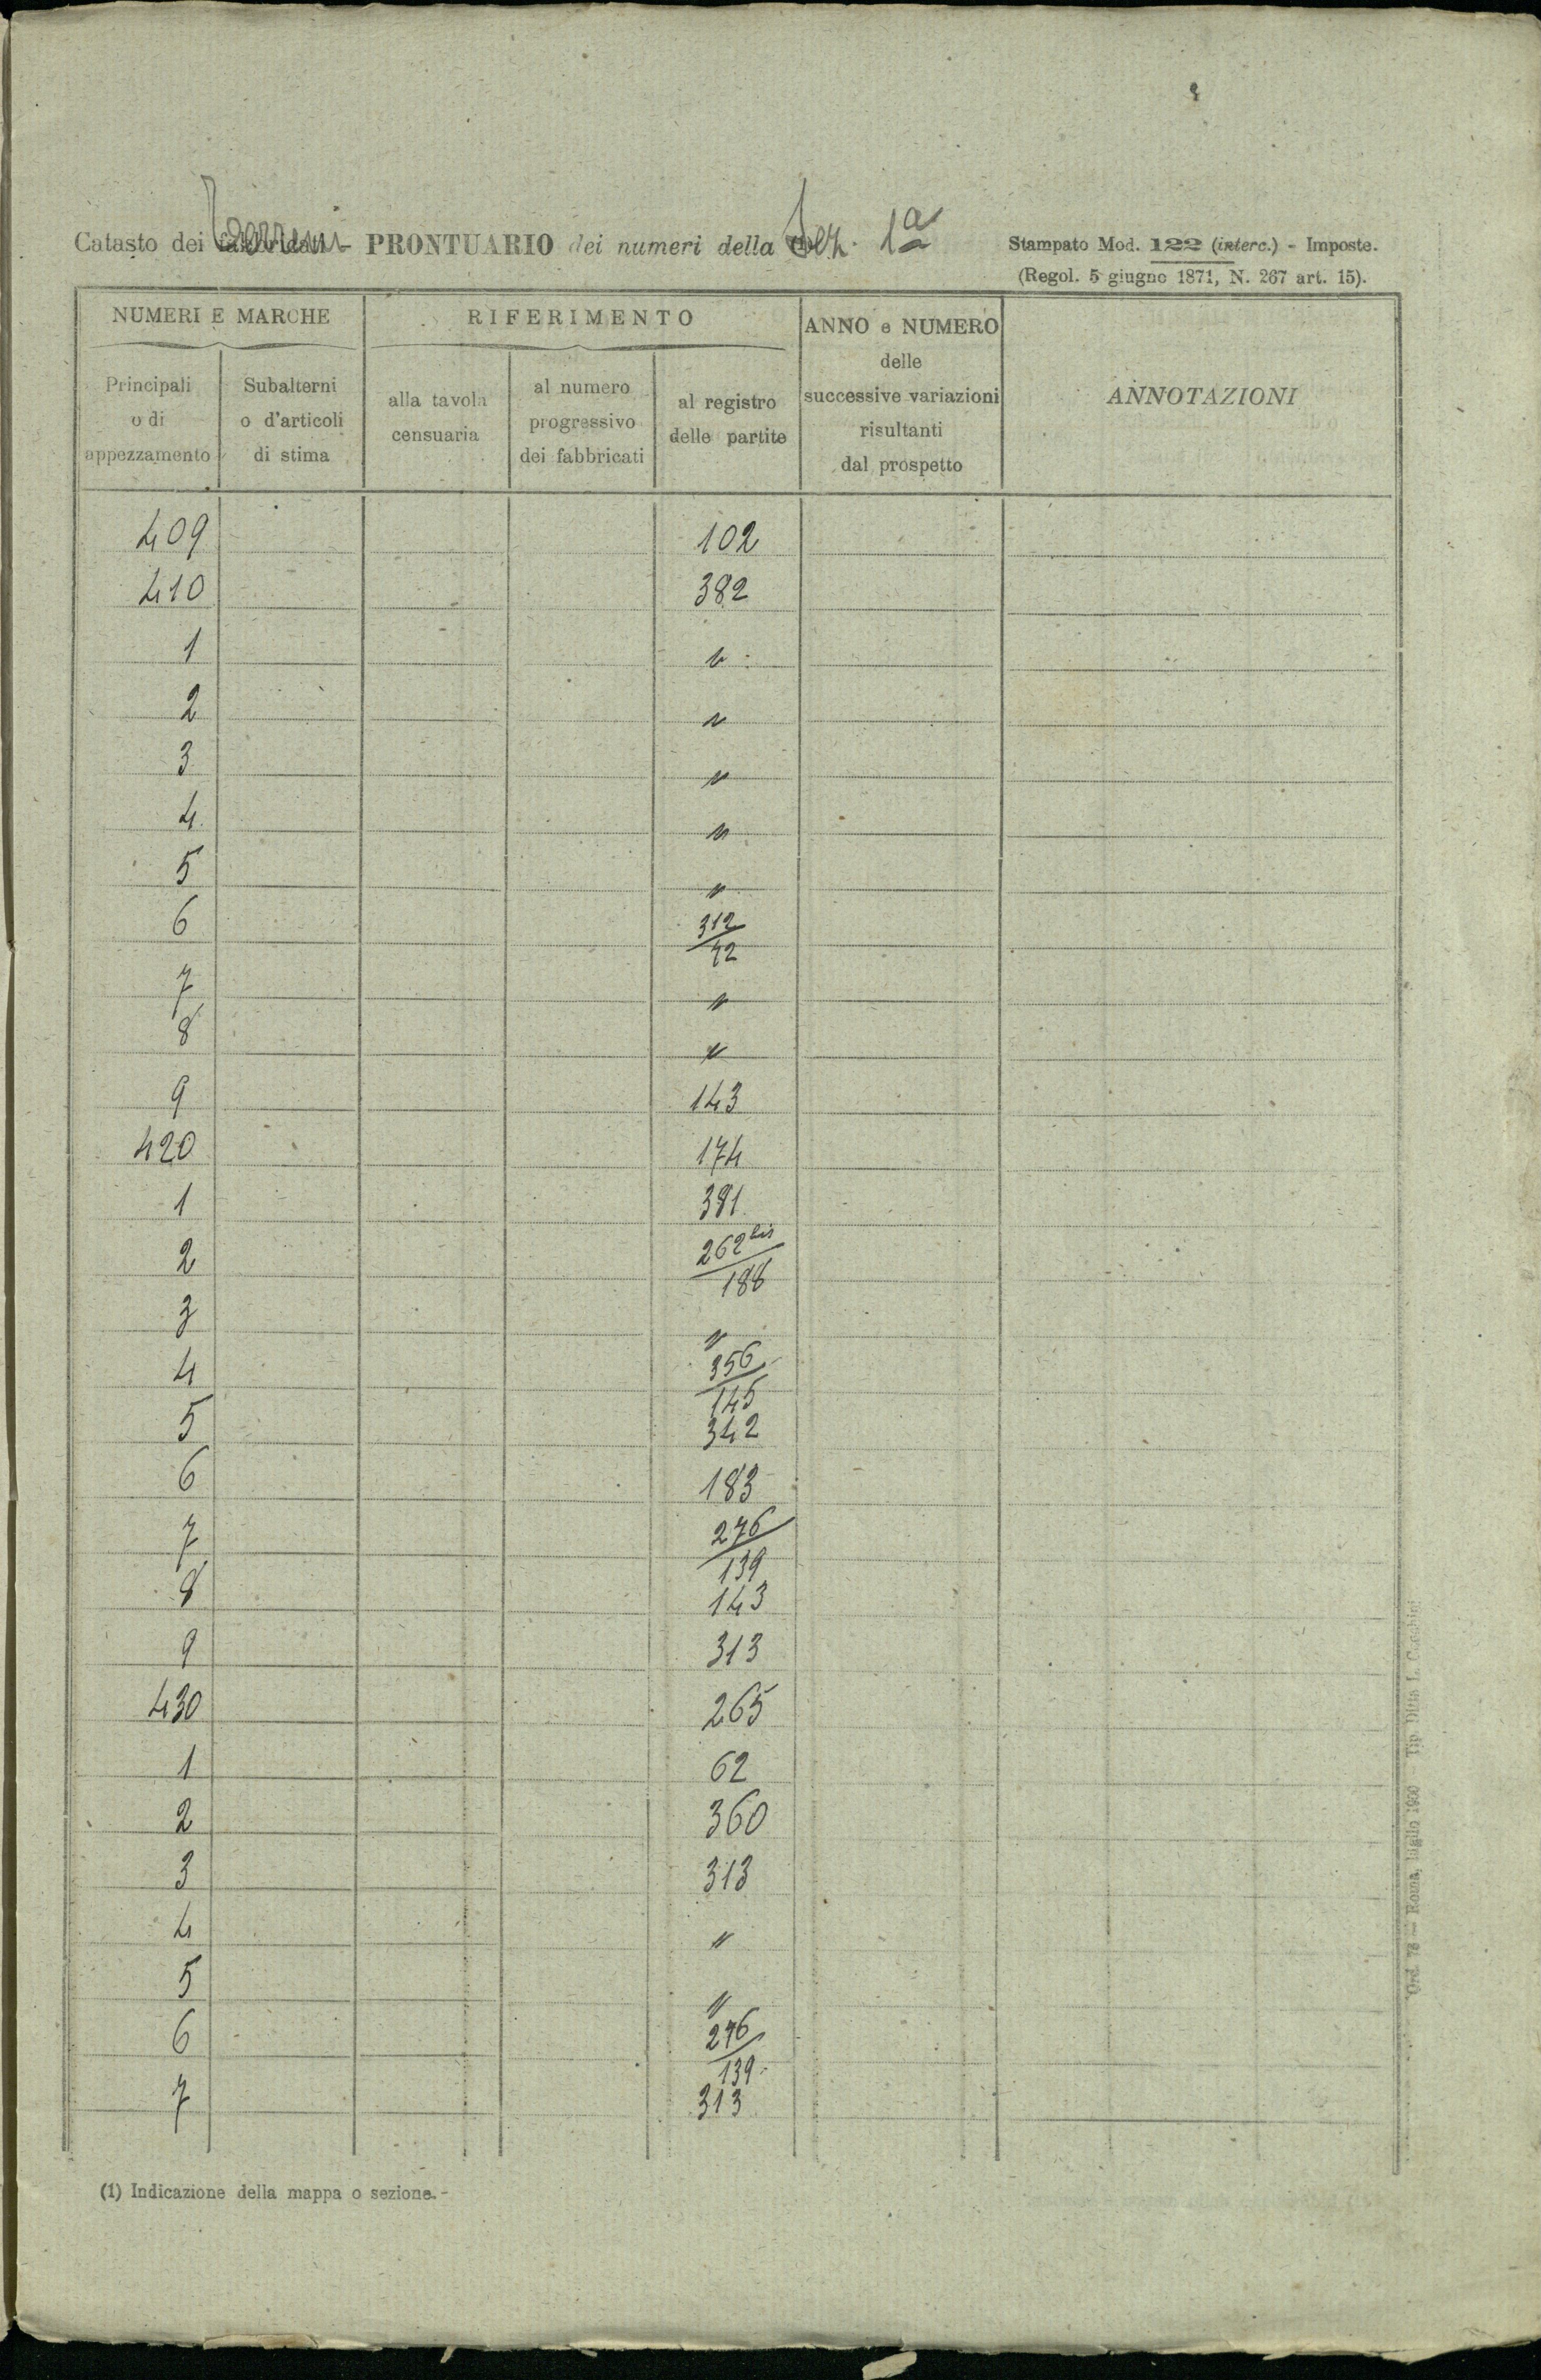 Catasto dei Terreni - PRONTUARIO dei numeri della Sez. 1a
Stampato Mod. 122 (interc.) - Imposte.
(Regol. 5 giugno 1871, N. 267 art. 15).
NUMERI E MARCHE
RIFERIMENTO
ANNO e NUMERO
delle
successive variazioni
risultanti
dal prospetto
ANNOTAZIONI
Principali
o di
appezzamento
Subalterni
o d'articoli
di stima
alla tavola
censuaria
al numero
progressivo
dei fabbricati
al registro
delle partite
409 102
410 382
1 "
2 "
3 "
4 "
5 "
6 312/72
7 "
8 "
9 143
420 174
1 381
2 262 bis/188
3 "
4 356/145
5 342
6 183
7 276/139
8 143
9 313
430 265
1 62
2 360
3 313
4 "
5 "
6 276/139
7 313
(1) Indicazione della mappa o sezione.
Ord. 78 — Roma, luglio 1900 Tip Ditta L. Cecchini